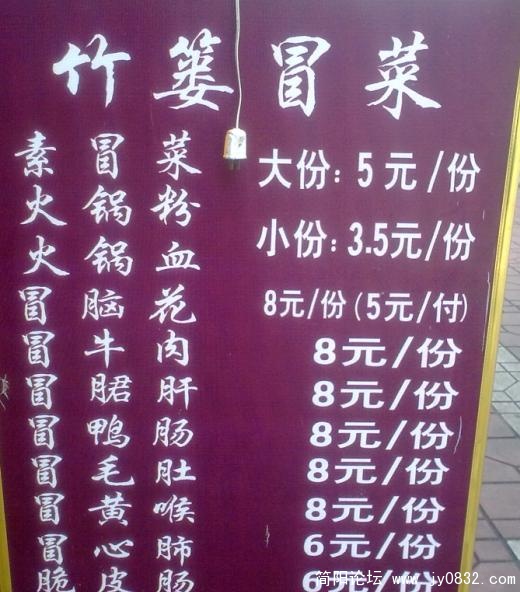 竹篓冒菜
素冒菜
火锅粉
火锅血
冒脑花
冒牛肉
冒䐃肝
冒鸭肠
冒毛肚
冒黄喉
冒心肺
脆皮肠
大份：5元/份
小份：3.5元/份
8元/份（5元/付）
8元/份
8元/份
8元/份
8元/份
8元/份
6元/份
6元/份
简阳论坛 www.jy0832.com